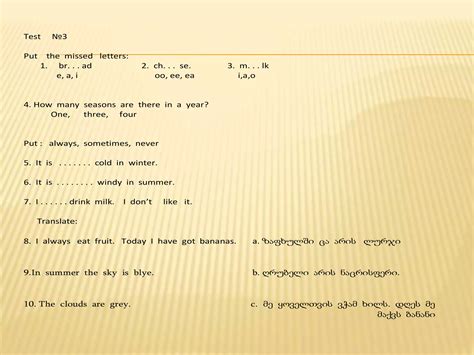 Test №3
Put the missed letters:
1. br. . . ad 2. ch. . . se. 3. m. . . lk
e, a, i oo, ee, ea i,a,o
4. How many seasons are there in a year?
One, three, four
Put : always, sometimes, never
5. It is . . . . . . . cold in winter.
6. It is . . . . . . . . windy in summer.
7. I . . . . . . drink milk. I don't like it.
Translate:
8. I always eat fruit. Today I have got bananas. a. ზაფხულში ცა არის ლურჯი
9.In summer the sky is blye. b. ღრუბელი არის ნაცრისფერი.
10. The clouds are grey. c. მე ყოველთვის ვჭამ ხილს. დღეს მე
მაქვს ბანანი